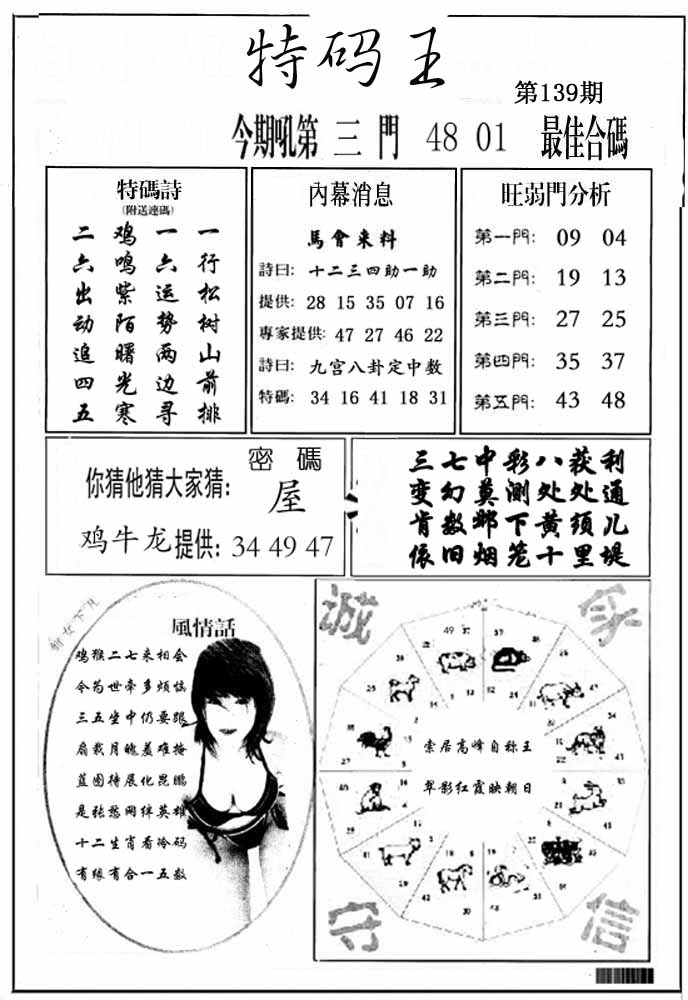 特码王
第139期
今期吼第 三 門 48 01 最佳合碼
特碼詩
(附送連碼)
一行松树山前排
一六运势两边寻
鸡鸣紫陌曙光寒
二六出动追四五
內幕消息
馬會来料
詩曰: 十二三四助一助
提供: 28 15 35 07 16
專家提供: 47 27 46 22
詩曰: 九宫八卦定中数
特碼: 34 16 41 18 31
旺弱門分析
第一門: 09 04
第二門: 19 13
第三門: 27 25
第四門: 35 37
第五門: 43 48
密碼
你猜他猜大家猜: 屋
鸡牛龙提供: 34 49 47
三七中彩八获利
变幻莫测处处通
肯数邺下黄须儿
依旧烟笼十里堤
仙女下凡
風情話
鸡猴二七来相会
令苟世牵多烦恼
三五坐中仍要跟
扇裁月魄羞难掩
蓝图待展化昆鹏
是张愁网绊英雄
十二生肖看冷码
有缘有合一五数
诚
守
信
索居高峰自称王
翠影红霞映朝日